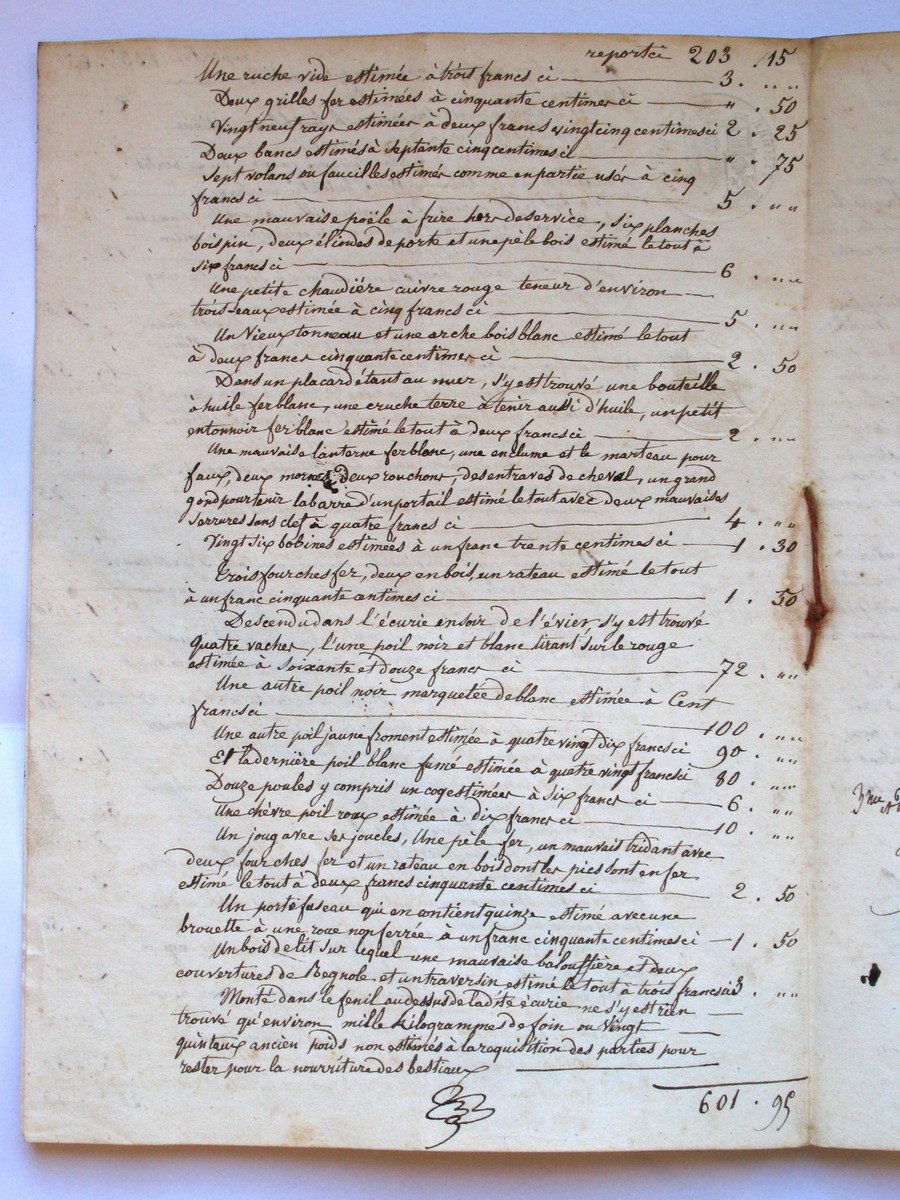 report ci 203 . 15
Une ruche vide estimée à trois francs ci 3 . "
Deux grilles fer estimées à cinquante centimes ci " . 50
Vingt neuf rays estimées à deux francs vingt cinq centimes ci 2 . 25
Deux bancs estimés à septante cinq centimes ci " . 75
Sept volans ou faucilles estimés comme en partie usés à cinq
francs ci 5 . "
Une mauvaise poële à frire hors de service, six planches
bois pin, deux élindes de porte et une pèle bois estimé le tout à
six francs ci 6 . "
Une petite chaudière cuivre rouge teneur d'environ
trois seaux estimée à cinq francs ci 5 . "
Un Vieux tonneau et une arche bois blanc estimé le tout
à deux francs cinquante centimes ci 2 . 50
Dans un placard étant au mur, s'y est trouvé une bouteille
à huile fer blanc, une cruche terre à tenir aussi d'huile, un petit
entonnoir fer blanc estimé le tout à deux francs ci 2 . "
Une mauvaise lanterne fer blanc, une enclume et le marteau pour
faux, deux deux rouchons, des entraves de cheval, un grand
gond pour tenir la barre d'un portail estimé le tout avec deux mauvaises
serrures sans clef à quatre francs ci 4 . "
Vingt six bobines estimées à un franc trente centimes ci 1 . 30
Trois fourches fer, deux en bois, un rateau estimé le tout
à un franc cinquante centimes ci 1 . 50
Descendu dans l'écurie en soir de l'évier s'y est trouvé
quatre vaches, l'une poil noir et blanc tirant sur le rouge
estimée à soixante et douze francs ci 72 . "
Une autre poil noir marquetée de blanc estimée à Cent
francs ci 100 . "
Une autre poil jaune froment estimée à quatre vingt dix francs ci 90 . "
Et la dernière poil blanc fumé estimée à quatre vingt francs ci 80 . "
Douze poules y compris un coq estimées à six francs ci 6 . "
Une chèvre poil roux estimée à dix francs ci 10 . "
Un joug avec ses joucles, Une pèle fer, un mauvais tridant avec
deux fourches fer et un rateau en bois dont les pics sont en fer
estimé le tout à deux francs cinquante centimes ci 2 . 50
Un porte fuseau qui en contient quinze estimé avec une
brouette à une roue non ferrée à un franc cinquante centimes ci 1 . 50
Un bois de lit sur lequel une mauvaise balouffière et deux
couvertures de Begnole et un traversin estimé le tout à trois francs ci 3 . "
Monté dans le fenil au dessus de la dite écurie ne s'y est rien
trouvé qu'environ mille kilogrammes de foin ou Vingt
quintaux ancien poids non estimés à la requisition des parties pour
rester pour la nourriture des bestiaux
601 . 95